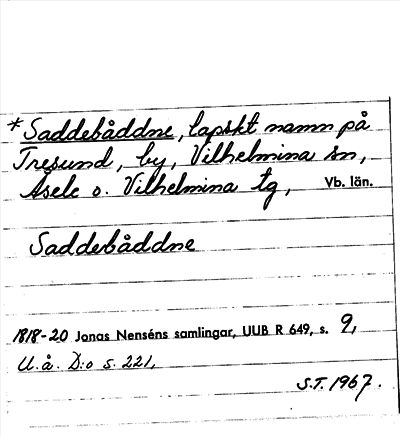 *Saddebåddne, lapskt namn på
Tresund, by, Vilhelmina sn,
Åsele o. Vilhelmina tg, Vb. län.
Saddebåddne
1818-20 Jonas Nenséns samlingar, UUB R 649, s. 9,
U.å. D:o s. 221,
S.T. 1967.